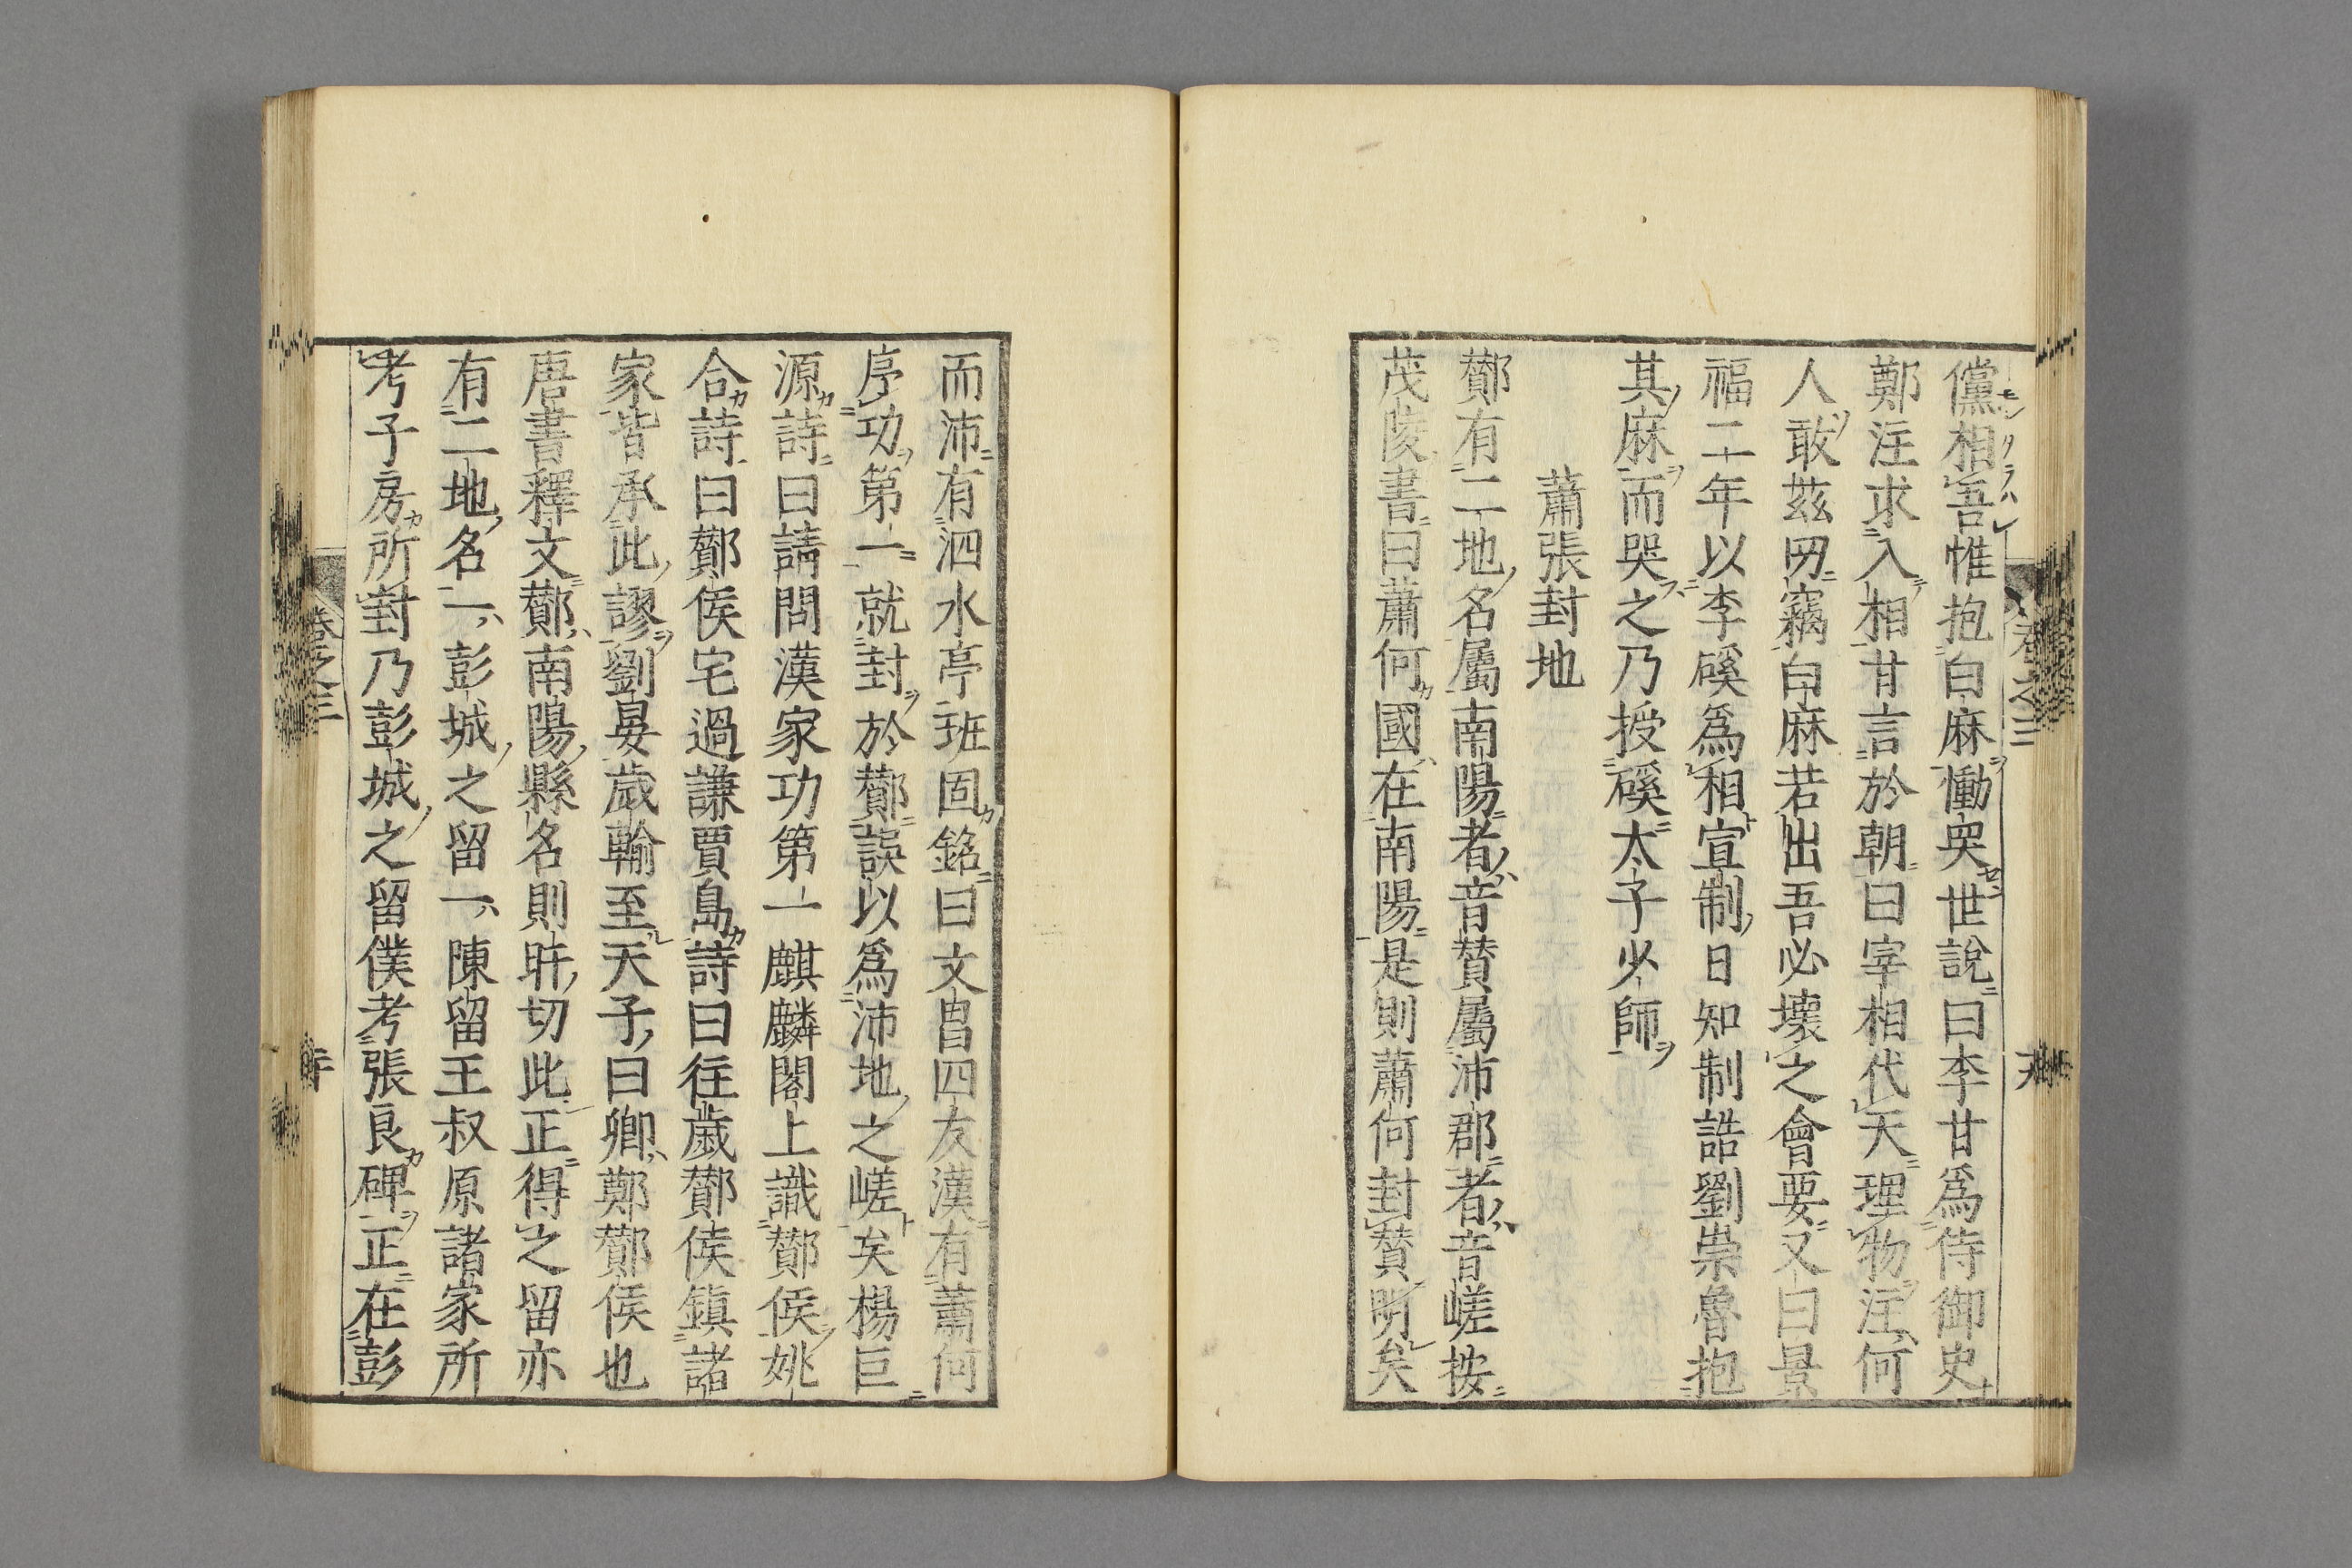 儻相吾惟抱白麻慟哭世說曰李甘爲侍御史
鄭注求入相甘言於朝曰宰相代天理物注何
人敢茲叨竊白麻若出吾必壞之會要又曰景
福二年以李磎爲相宣制日知制誥劉崇魯抱
其麻而哭之乃授磎太子少師
蕭張封地
酇有二地名屬南陽者音贊屬沛郡者音嵯按
茂陵書曰蕭何國在南陽是則蕭何封贊明矣
而沛有泗水亭班固銘曰文昌四友漢有蕭何
序功第一就封於酇誤以爲沛地之嵯矣楊巨
源詩曰請問漢家功第一麒麟閣上識酇侯姚
合詩曰酇侯宅過謙賈島詩曰往歲酇侯鎮諸
家皆承此謬劉晏歲輸至天子曰卿鄭酇侯也
唐書釋文酇南陽縣名則旰切此正得之留亦
有二地名一彭城之留一陳留王叔原諸家所
考子房所封乃彭城之留僕考張良碑正在彭
卷之三
卷之三